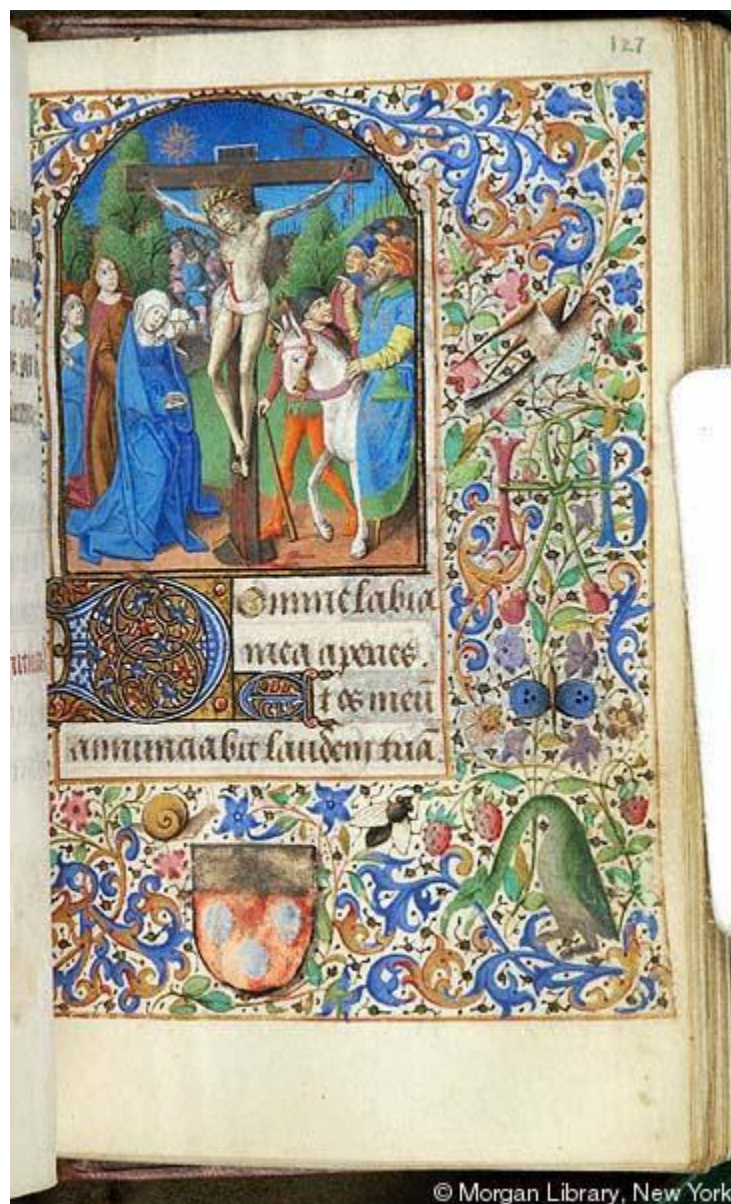 127
I B
Domine labia
mea aperies.
Et os meū
annunciabit laudem tuā.
© Morgan Library, New York